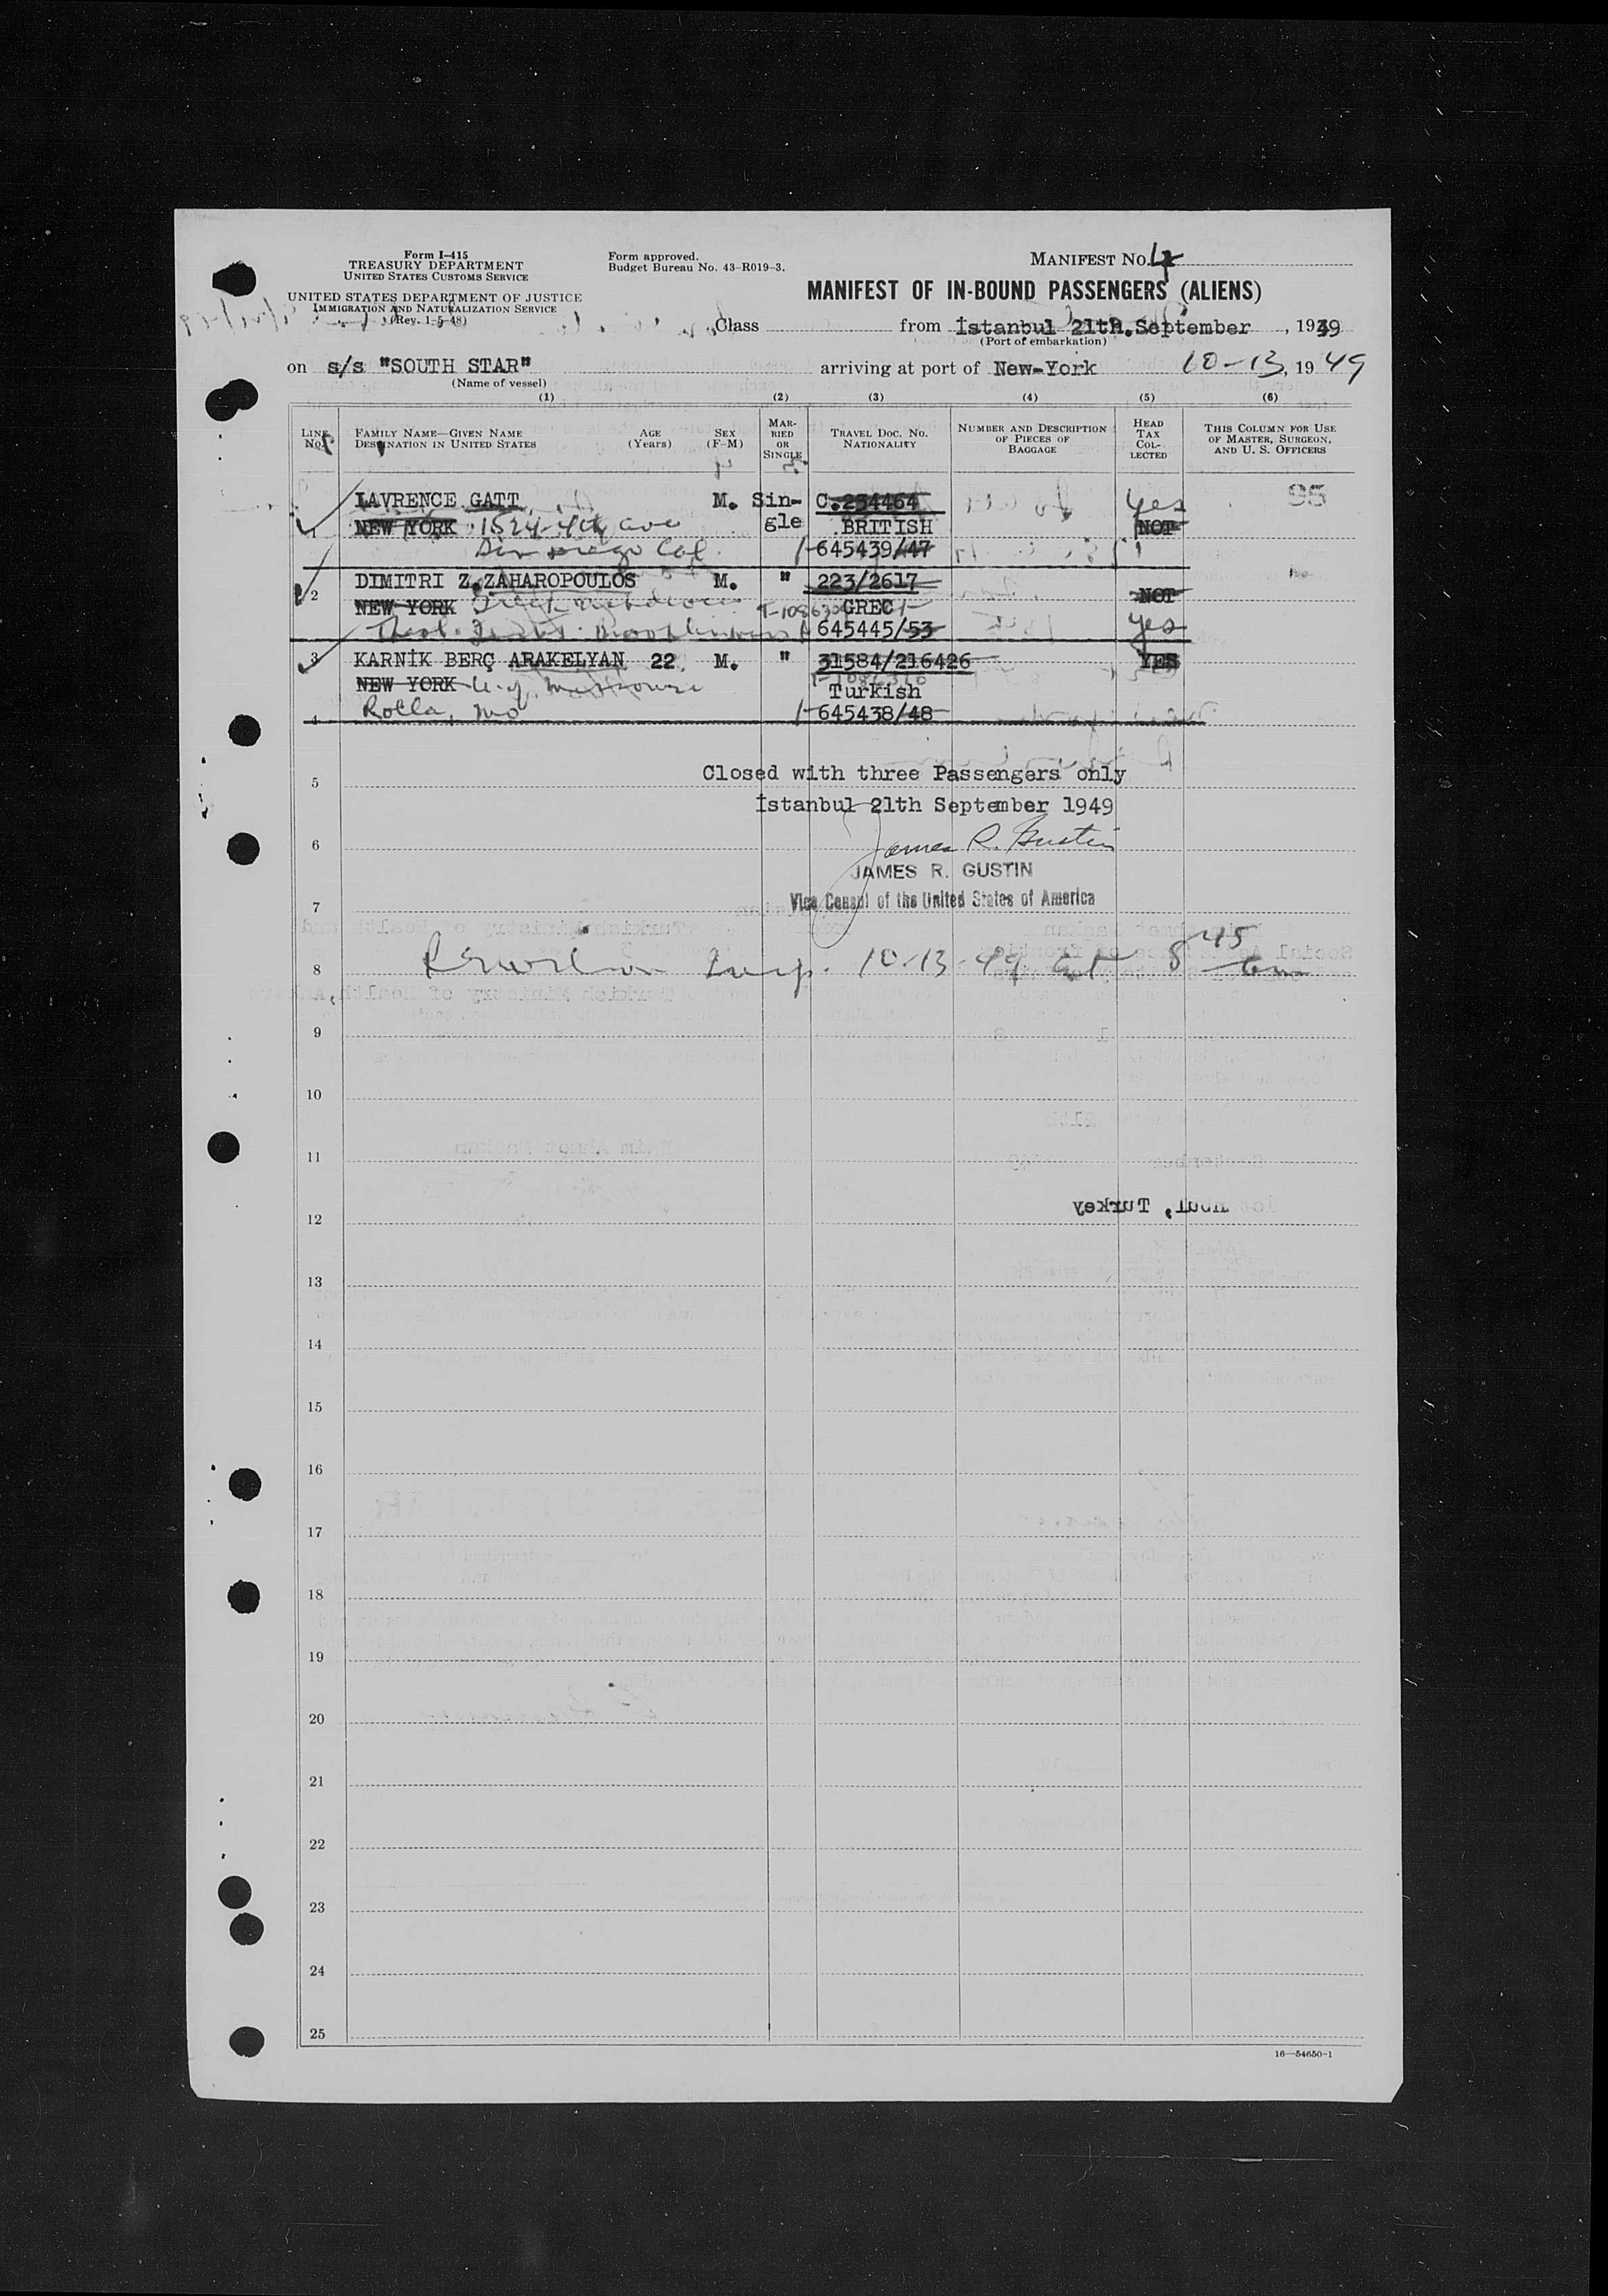 Form I-415
TREASURY DEPARTMENT
UNITED STATES CUSTOMS SERVICE
UNITED STATES DEPARTMENT OF JUSTICE
IMMIGRATION AND NATURALIZATION SERVICE
(Rev. 1-5-48)
Form approved.
Budget Bureau No. 43-R019-3.
MANIFEST No.
MANIFEST OF IN-BOUND PASSENGERS (ALIENS)
Class from İstanbul 21th.September, 1949
(Port of embarkation)
on s/s "SOUTH STAR" arriving at port of New-York 10-13, 1949
(Name of vessel)
(1) (2) (3) (4) (5) (6)
LINE No. FAMILY NAME—GIVEN NAME DESTINATION IN UNITED STATES AGE (Years) SEX (F-M) MARRIED OR SINGLE TRAVEL DOC. NO. NATIONALITY NUMBER AND DESCRIPTION OF PIECES OF BAGGAGE HEAD TAX COLLECTED THIS COLUMN FOR USE OF MASTER, SURGEON, AND U. S. OFFICERS
LAVRENCE GATT M. Sin- C.254464 Yes 95
1 NEW YORK 1524-4th ave gle BRITISH NOT
San Diego Cal. 645439/47
DIMITRI Z.ZAHAROPOULOS M. " 223/2617
2 NEW YORK Greek GREC NOT
Theol. 645445/53 Yes
3 KARNİK BERÇ ARAKELYAN 22 M. " 31584/216426 YES
NEW YORK U. of Missouri Turkish
Rolla, Mo 645438/48
4
Closed with three Passengers only
5
İstanbul 21th September 1949
6 James R. Gustin
JAMES R. GUSTIN
Vice Consul of the United States of America
7
8 Insp. 10-13-49 at 8 45 am
9
10
11
12 Turkey
13
14
15
16
17
18
19
20
21
22
23
24
25
16—54650-1